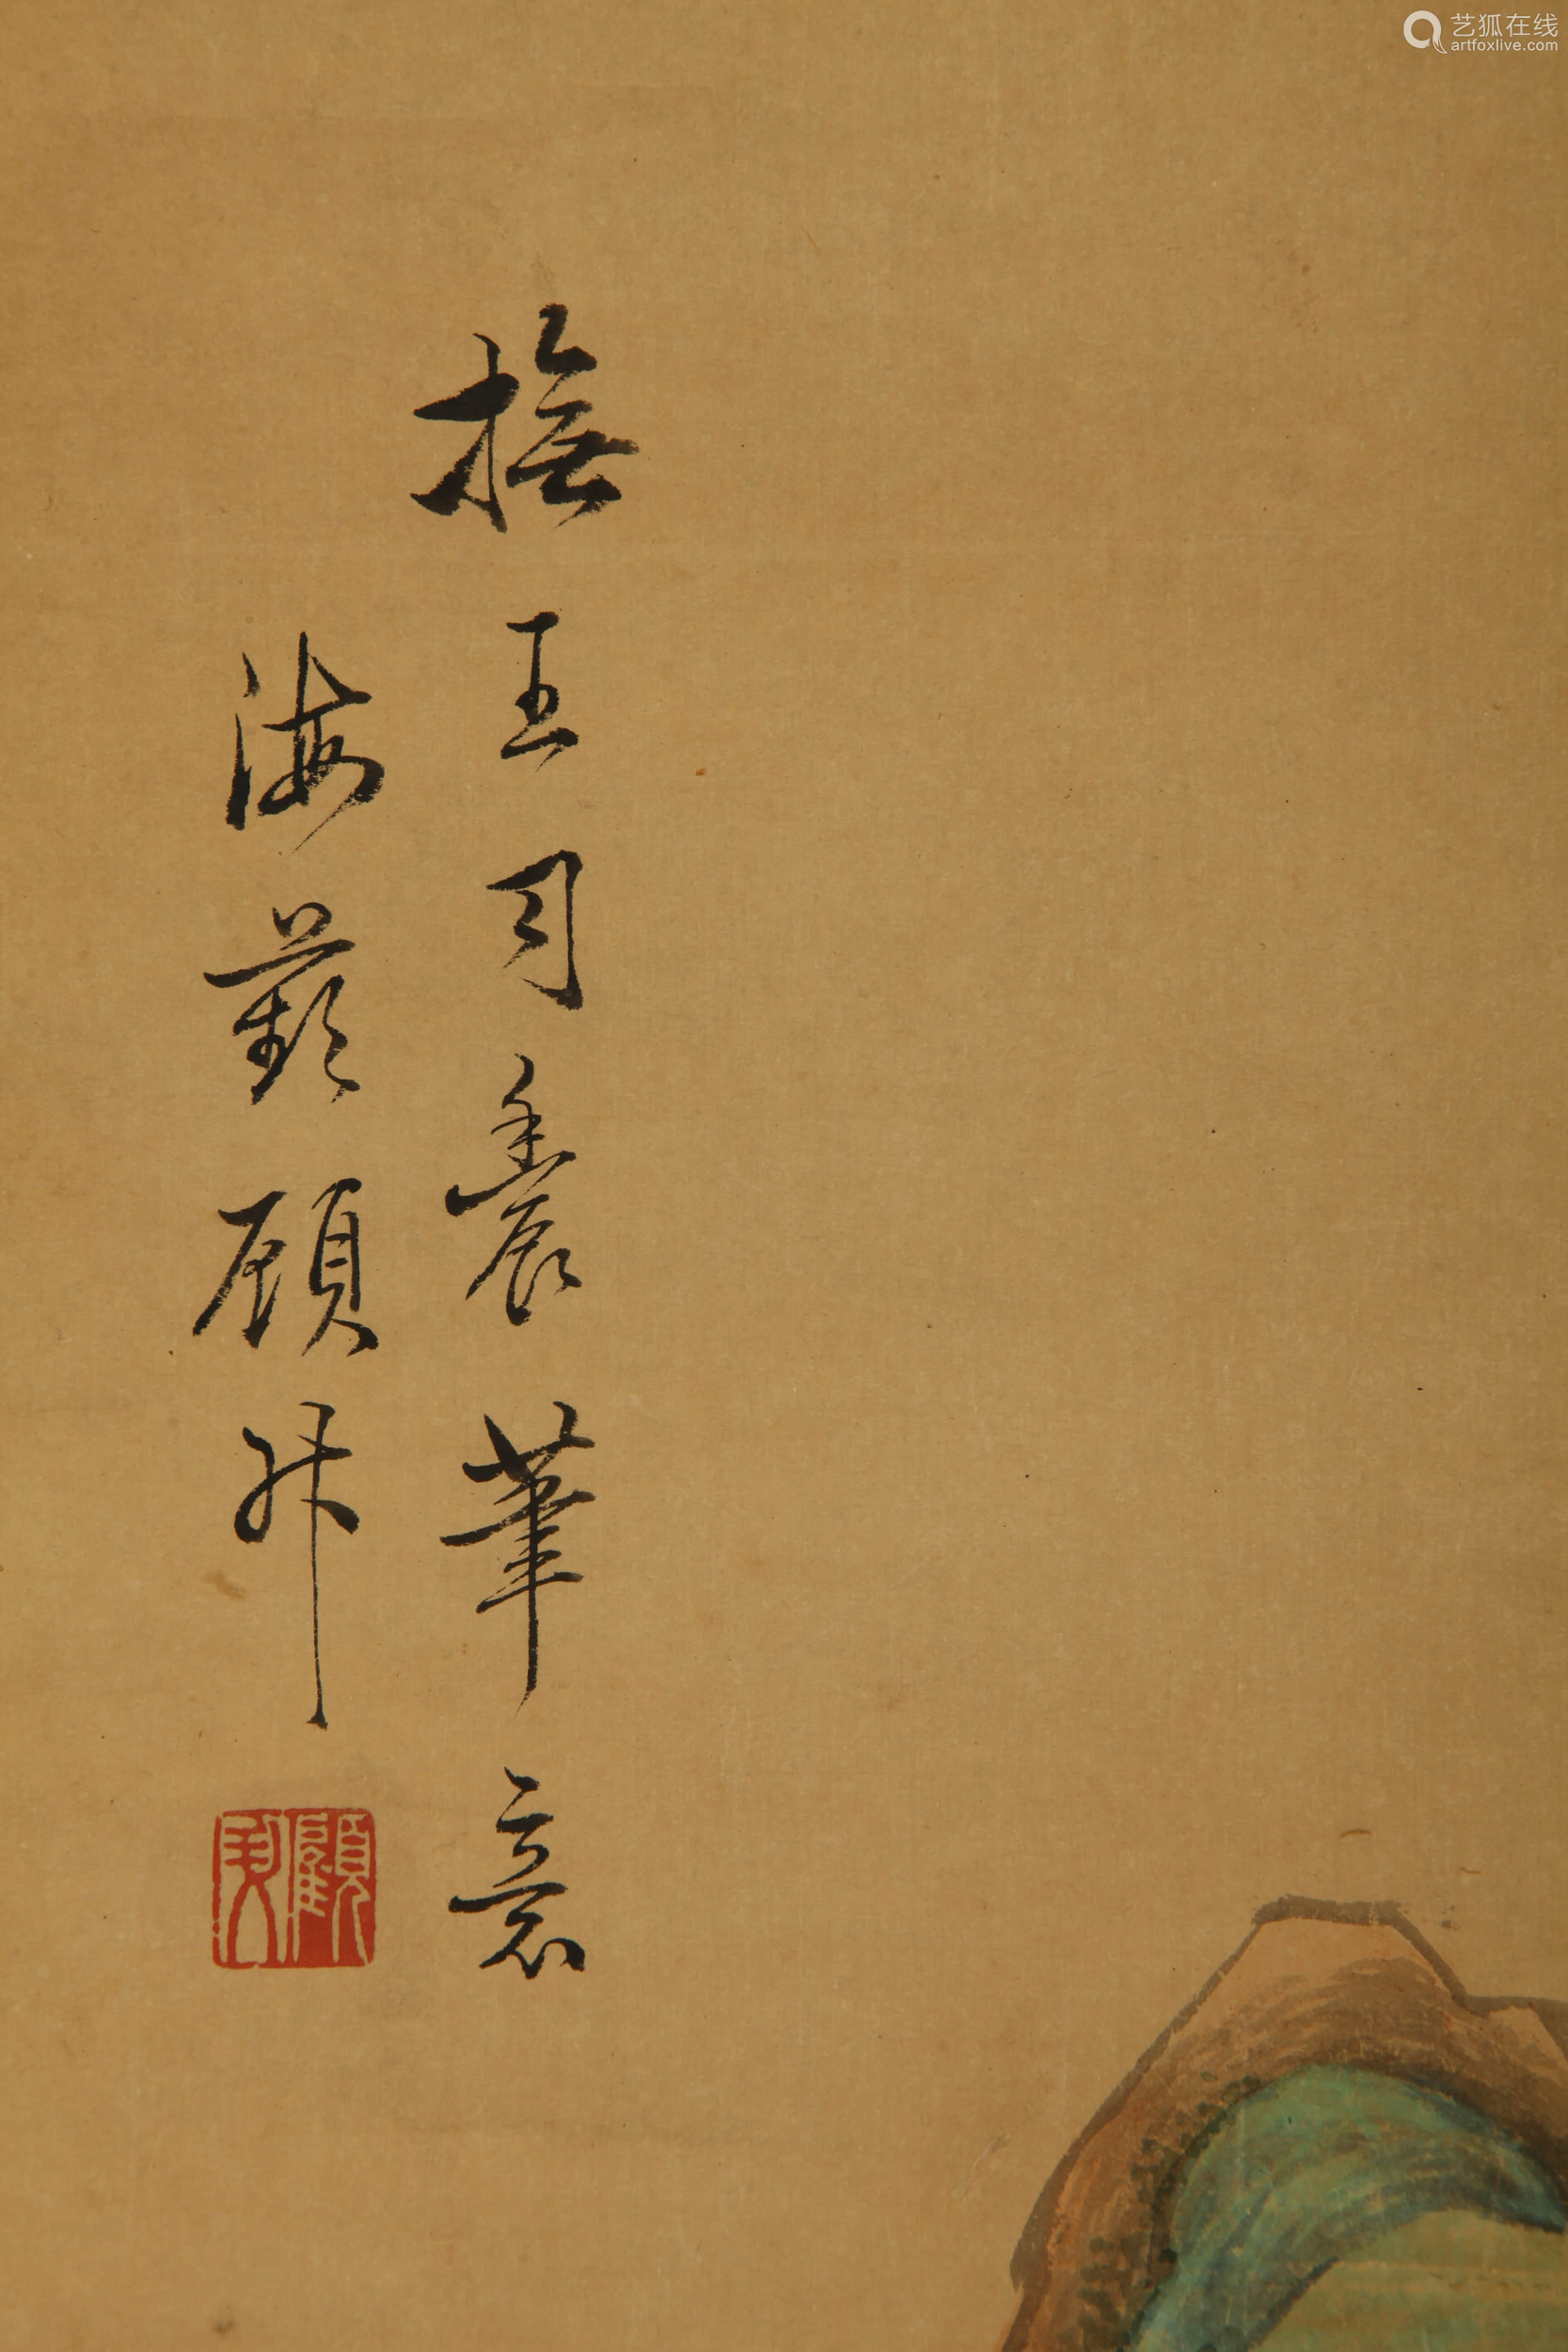 撫王司農筆意
海蘇顧升
艺狐在线
artfoxlive.com